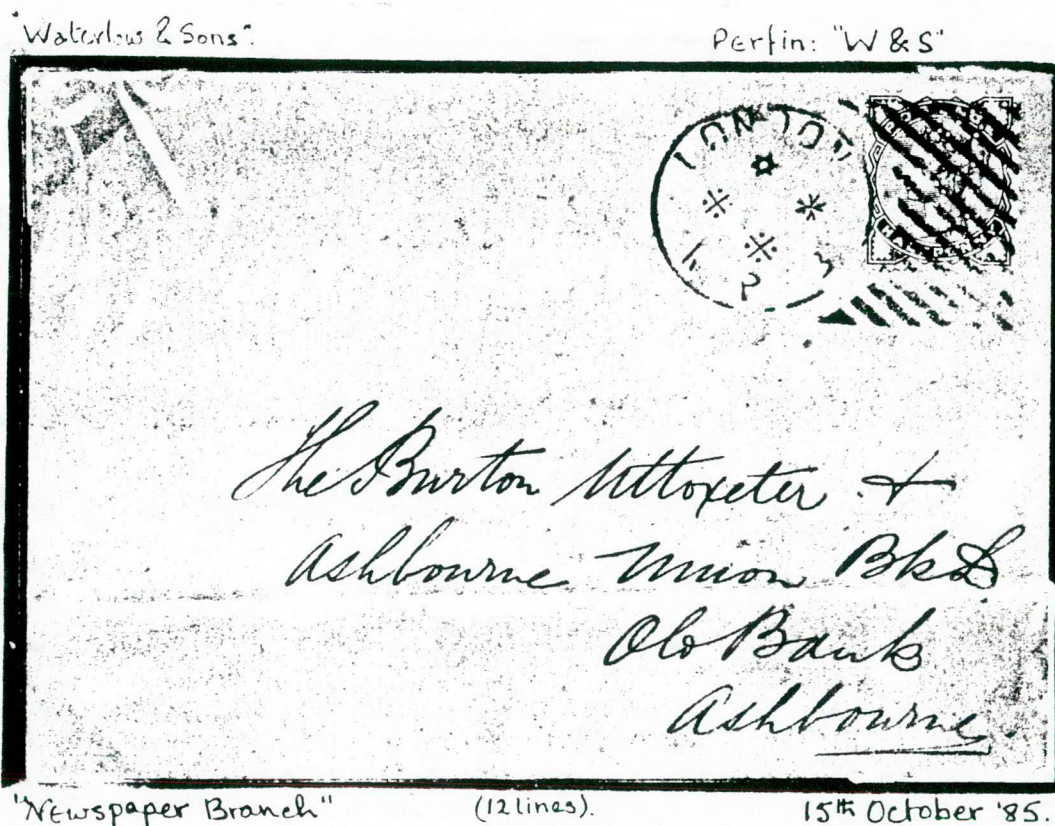 "Waterlow & Sons".
Perfin: "W & S"
LONDON
2 3
The Burton Uttoxeter &
Ashbourne Union Bk Ld
Old Bank
Ashbourne.
"Newspaper Branch"
(12 lines).
15th October '85.